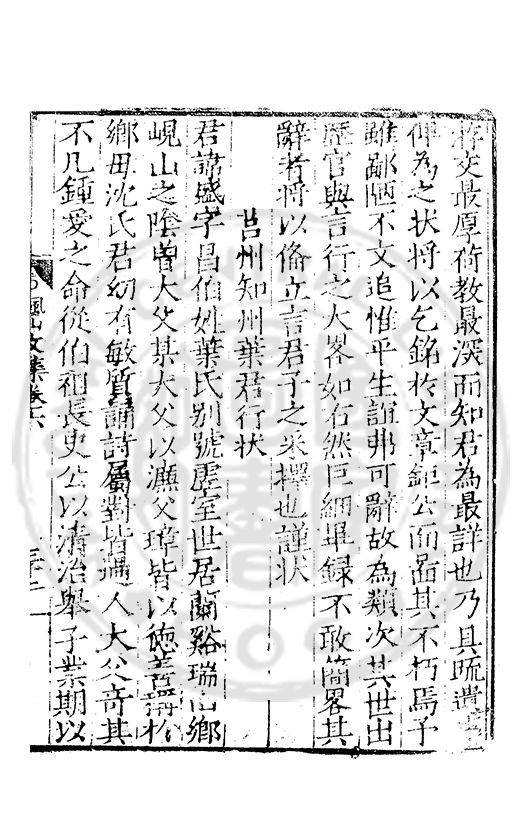 存交最厚荷教最深而知君為最詳也乃具疏遺
俾為之状將以乞銘於文章鉅公而啚其不朽焉予
雖鄙陋不文追惟平生誼弗可辭故為類次其世出
歷官與言行之大畧如右然巨細畢録不敢簡畧其
辭者將以俻立言君子之采擇也謹状
莒州知州葉君行状
君諱盛字昌伯姓葉氏别號虚室世居蘭谿瑞山鄉
峴山之陰曽大父某大父以濂父璋皆以德善稱於
鄉母沈氏君幼有敏質誦詩屬對皆過人大父奇其
不凡鍾愛之命從伯祖長史公以清治舉子業期以
楓山文集卷六